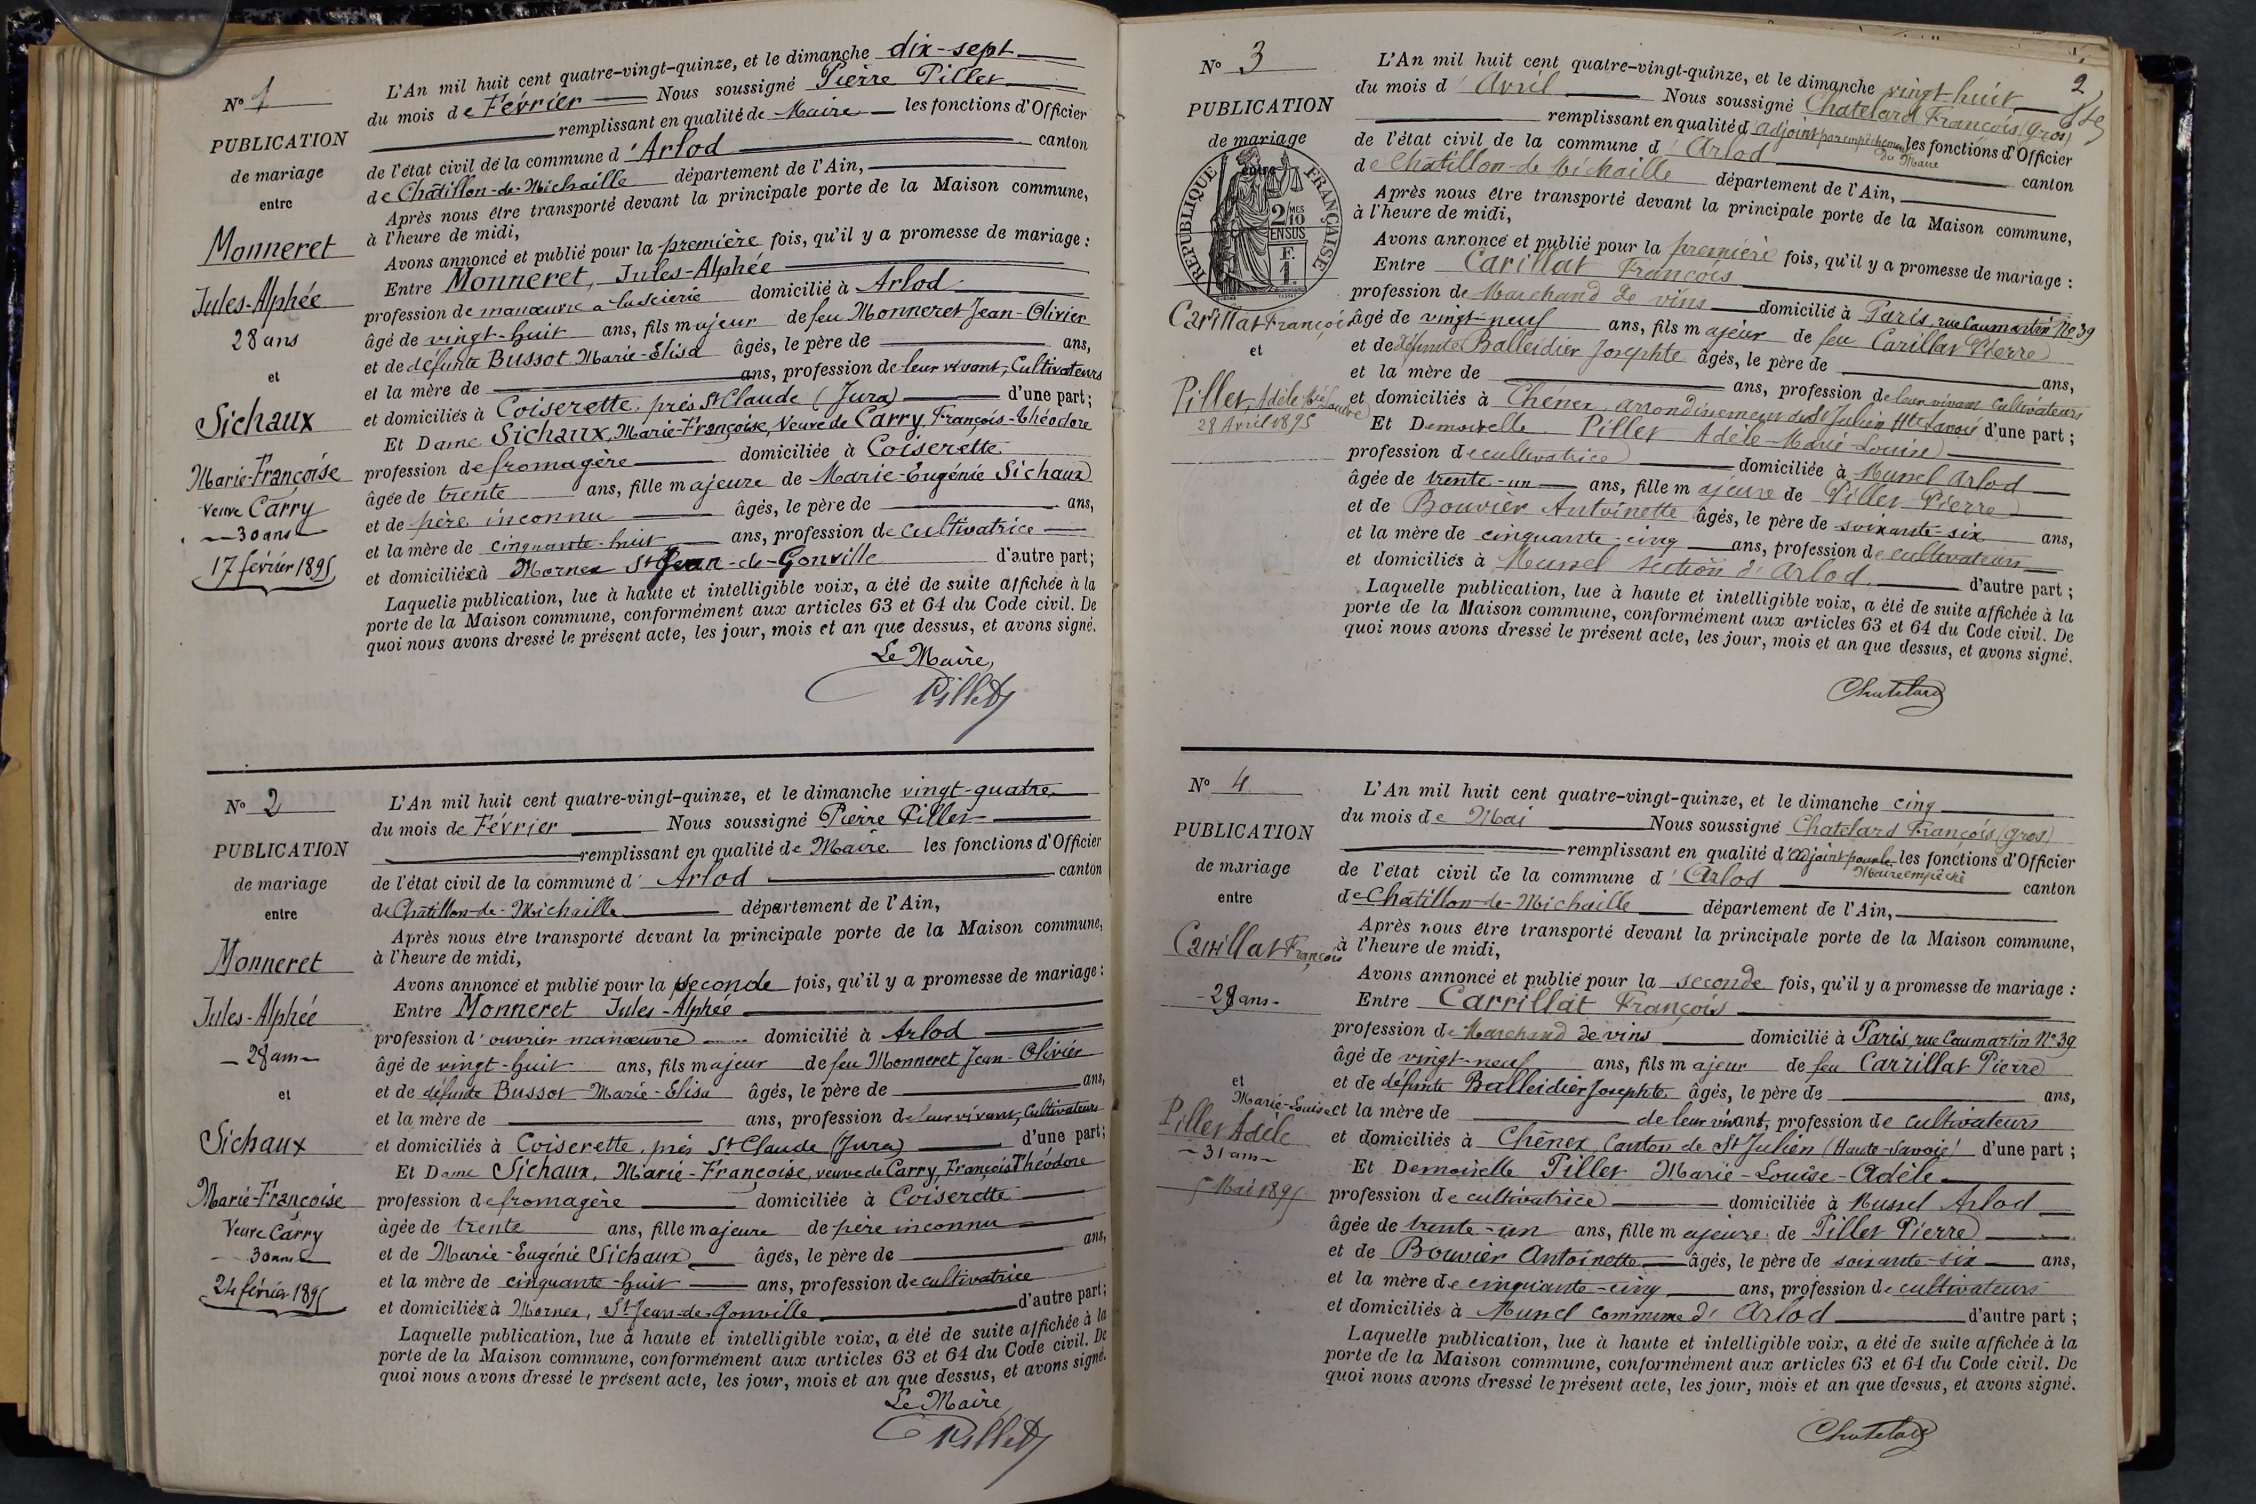 N° 1
PUBLICATION
de mariage
entre
Monneret
Jules-Alphée
28 ans
et
Sichaux
Marie-Françoise
Veuve Carry
30 ans
17 février 1895
L'An mil huit cent quatre-vingt-quinze, et le dimanche dix-sept
du mois de Février Nous soussigné Pierre Pillet
remplissant en qualité de Maire les fonctions d'Officier
de l'état civil de la commune d'Arlod canton
de Châtillon-de-Michaille département de l'Ain,
Après nous être transporté devant la principale porte de la Maison commune,
à l'heure de midi,
Avons annoncé et publié pour la première fois, qu'il y a promesse de mariage :
Entre Monneret, Jules-Alphée
profession de manœuvre à la scierie domicilié à Arlod
âgé de vingt-huit ans, fils majeur de feu Monneret Jean-Olivier
et de défunte Bussot Marie-Elisa âgés, le père de ans,
et la mère de ans, profession de leur vivant, Cultivateurs
et domiciliés à Coiserette, près St Claude (Jura) d'une part;
Et Dame Sichaux, Marie-Françoise, Veuve de Carry, François-Théodore
profession de fromagère domiciliée à Coiserette
âgée de trente ans, fille majeure de Marie-Eugénie Sichaux
et de père inconnu âgés, le père de ans,
et la mère de cinquante-huit ans, profession de cultivatrice
et domiciliés à Mornex St Jean-de-Gonville d'autre part;
Laquelle publication, lue à haute et intelligible voix, a été de suite affichée à la
porte de la Maison commune, conformément aux articles 63 et 64 du Code civil. De
quoi nous avons dressé le présent acte, les jour, mois et an que dessus, et avons signé.
Le Maire,
Pillet
N° 2
PUBLICATION
de mariage
entre
Monneret
Jules-Alphée
28 ans
et
Sichaux
Marie-Françoise
Veuve Carry
30 ans
24 février 1895
L'An mil huit cent quatre-vingt-quinze, et le dimanche vingt-quatre
du mois de Février Nous soussigné Pierre Pillet
remplissant en qualité de Maire les fonctions d'Officier
de l'état civil de la commune d'Arlod canton
de Châtillon-de-Michaille département de l'Ain,
Après nous être transporté devant la principale porte de la Maison commune,
à l'heure de midi,
Avons annoncé et publié pour la seconde fois, qu'il y a promesse de mariage :
Entre Monneret Jules-Alphée
profession d'ouvrier manœuvre domicilié à Arlod
âgé de vingt-huit ans, fils majeur de feu Monneret Jean-Olivier
et de défunte Bussot Marie-Elisa âgés, le père de ans,
et la mère de ans, profession de leur vivant, Cultivateurs
et domiciliés à Coiserette, près St Claude (Jura) d'une part;
Et Dame Sichaux, Marie-Françoise, veuve de Carry, François Théodore
profession de fromagère domiciliée à Coiserette
âgée de trente ans, fille majeure de père inconnu
et de Marie-Eugénie Sichaux âgés, le père de ans,
et la mère de cinquante-huit ans, profession de cultivatrice
et domiciliés à Mornex, St Jean-de-Gonville d'autre part;
Laquelle publication, lue à haute et intelligible voix, a été de suite affichée à la
porte de la Maison commune, conformément aux articles 63 et 64 du Code civil. De
quoi nous avons dressé le présent acte, les jour, mois et an que dessus, et avons signé.
Le Maire
Pillet
2
N° 3
PUBLICATION
de mariage
entre
RÉPUBLIQUE FRANÇAISE
2/10 MES
EN SUS
F.
1
Carillat François
et
Pillet, Adèle
28 Avril 1895
L'An mil huit cent quatre-vingt-quinze, et le dimanche vingt-huit
du mois d'Avril Nous soussigné Chatelard François (gros)
remplissant en qualité d'adjoint par empêchement du Maire les fonctions d'Officier
de l'état civil de la commune d'Arlod canton
de Châtillon-de-Michaille département de l'Ain,
Après nous être transporté devant la principale porte de la Maison commune,
à l'heure de midi,
Avons annoncé et publié pour la première fois, qu'il y a promesse de mariage :
Entre Carillat François
profession de Marchand de vins domicilié à Paris, rue Caumartin No 39
âgé de vingt-neuf ans, fils majeur de feu Carillat Pierre
et de défunte Balleidier Josephte âgés, le père de ans,
et la mère de ans, profession de leur vivant cultivateurs
et domiciliés à Chênex, arrondissement de St Julien Hte Savoie d'une part ;
Et Demoiselle Pillet Adèle-Marie-Louise
profession de cultivatrice domiciliée à Mussel Arlod
âgée de trente-un ans, fille majeure de Pillet Pierre
et de Bouvier Antoinette âgés, le père de soixante-six ans,
et la mère de cinquante-cinq ans, profession de cultivateurs
et domiciliés à Mussel section d'Arlod d'autre part ;
Laquelle publication, lue à haute et intelligible voix, a été de suite affichée à la
porte de la Maison commune, conformément aux articles 63 et 64 du Code civil. De
quoi nous avons dressé le présent acte, les jour, mois et an que dessus, et avons signé.
Chatelard
N° 4
PUBLICATION
de mariage
entre
Carrillat François
29 ans
et
Marie-Louise
Pillet Adèle
31 ans
5 Mai 1895
L'An mil huit cent quatre-vingt-quinze, et le dimanche cinq
du mois de Mai Nous soussigné Chatelard François (gros)
remplissant en qualité d'adjoint pour le Maire empêché les fonctions d'Officier
de l'état civil de la commune d'Arlod canton
de Châtillon-de-Michaille département de l'Ain,
Après nous être transporté devant la principale porte de la Maison commune,
à l'heure de midi,
Avons annoncé et publié pour la seconde fois, qu'il y a promesse de mariage :
Entre Carrillat François
profession de Marchand de vins domicilié à Paris, rue Caumartin N° 39
âgé de vingt-neuf ans, fils majeur de feu Carrillat Pierre
et de défunte Balleidier Josephte âgés, le père de ans,
et la mère de de leur vivant, profession de cultivateurs
et domiciliés à Chênex, Canton de St Julien (Haute-Savoie) d'une part ;
Et Demoiselle Pillet Marie-Louise-Adèle
profession de cultivatrice domiciliée à Mussel Arlod
âgée de trente-un ans, fille majeure de Pillet Pierre
et de Bouvier Antoinette âgés, le père de soixante-six ans,
et la mère de cinquante-cinq ans, profession de cultivateurs
et domiciliés à Mussel commune d'Arlod d'autre part ;
Laquelle publication, lue à haute et intelligible voix, a été de suite affichée à la
porte de la Maison commune, conformément aux articles 63 et 64 du Code civil. De
quoi nous avons dressé le présent acte, les jour, mois et an que dessus, et avons signé.
Chatelard